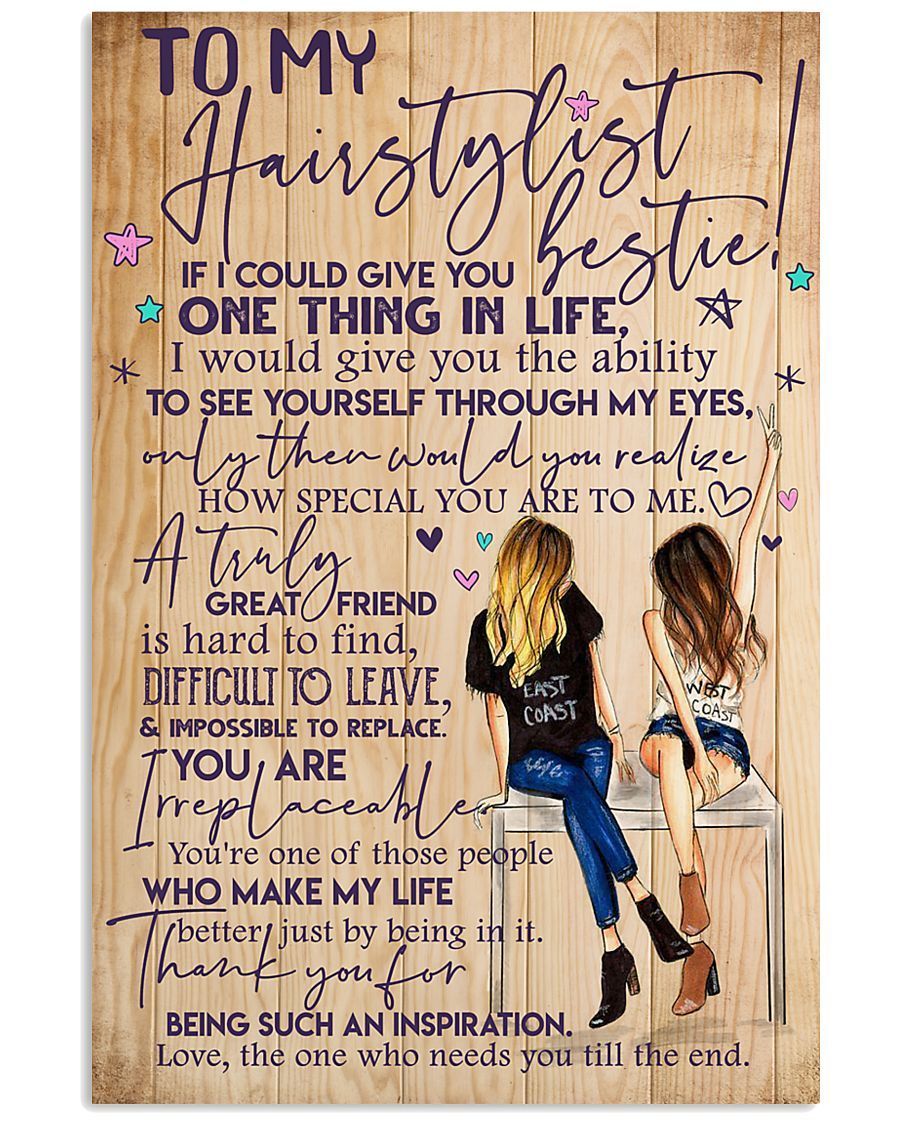 TO MY
Hairstylist
bestie!
IF I COULD GIVE YOU
ONE THING IN LIFE,
I would give you the ability
TO SEE YOURSELF THROUGH MY EYES,
only then would you realize
HOW SPECIAL YOU ARE TO ME.
A truly
GREAT FRIEND
is hard to find,
DIFFICULT TO LEAVE,
& IMPOSSIBLE TO REPLACE.
YOU ARE
Irreplaceable
You're one of those people
WHO MAKE MY LIFE
better just by being in it.
Thank you for
BEING SUCH AN INSPIRATION.
Love, the one who needs you till the end.
EAST
COAST
WEST
COAST